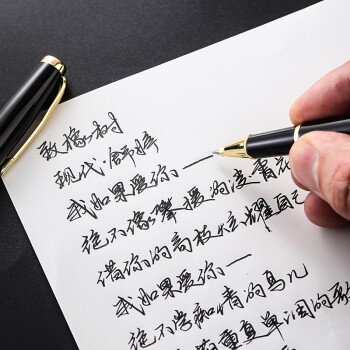 致橡树
现代·舒婷
我如果爱你一
绝不像攀援的凌霄花
借你的高枝炫耀自己
我如果爱你一
绝不学痴情的鸟儿
重复单调的歌